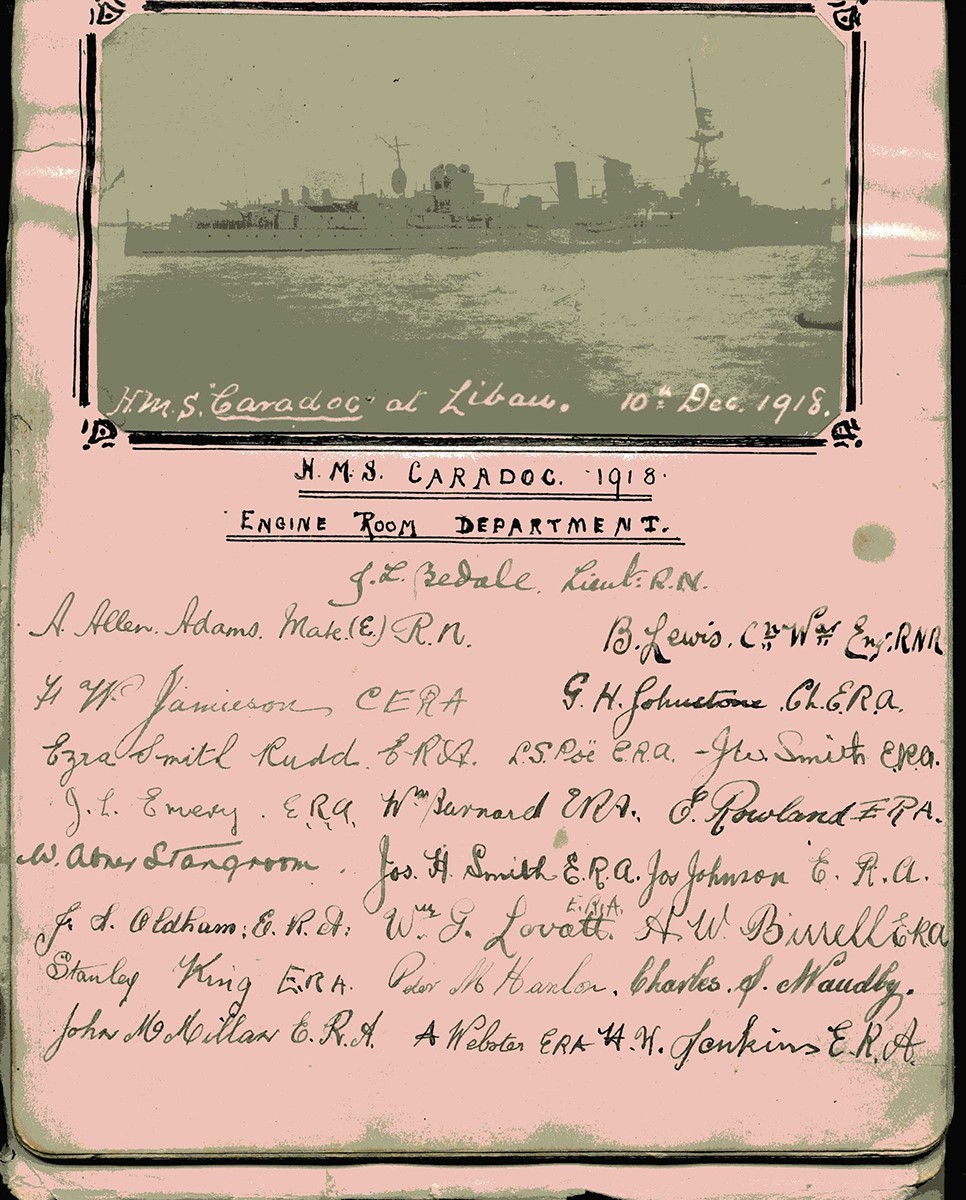 H.M.S. "Caradoc" at Libau. 10th Dec. 1918.
H.M.S. CARADOC. 1918.
ENGINE ROOM DEPARTMENT.
J. L. Bedale. Lieut: R.N.
A. Allen. Adams. Mate.(E) R.N. B. Lewis. War Eng. RNR
H W Jamieson CERA G. H. Johnstone. Ch.E.R.A.
Ezra Smith Rudd. E.R.A. L.S. Poë E.R.A. Smith E.R.A.
J. L. Emery. E.R.A. Wm Barnard ERA. E. Rowland E R A.
W. Abner Stangroom. Jos. H. Smith E.R.A. Jos Johnson E. R. A.
J. S. Oldham: E. R. A: Wm G. Lovatt. E.R.A. H. W. Birrell ERA
Stanley King E.R.A. M Hanlon. Charles. S. Waudby.
John McMillan E. R. A. A Webster ERA H. W. Jenkins E. R. A.